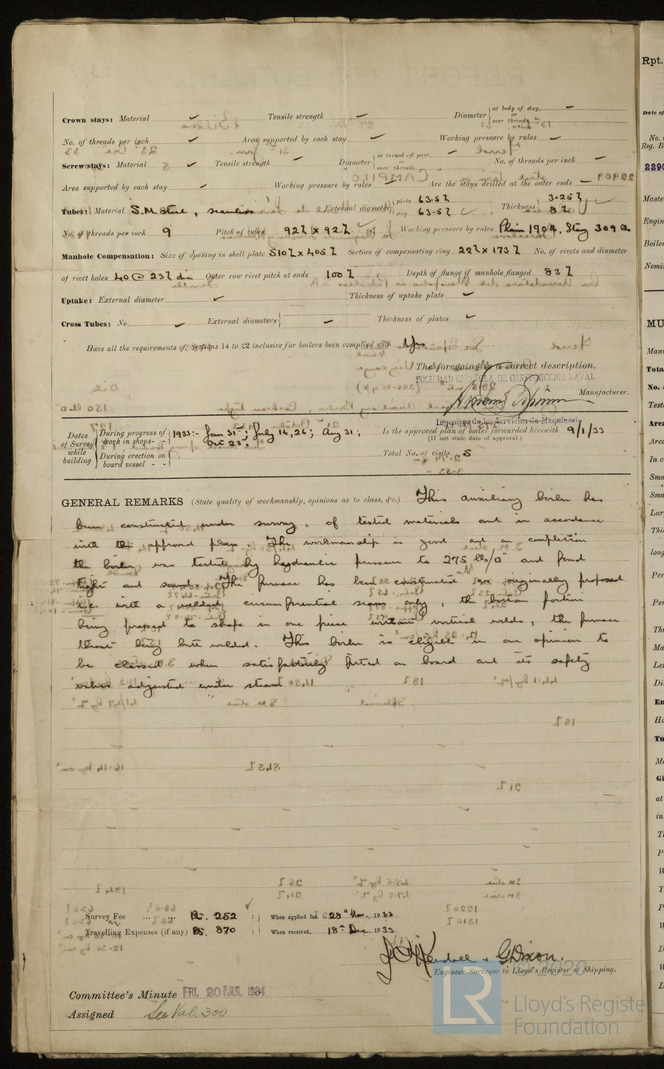 Crown stays: Material ✓ Tensile strength ✓ Diameter { at body of stay, or over threads
No. of threads per inch ✓ Area supported by each stay ✓ Working pressure by rules ✓
Screw stays: Material ✓ Tensile strength ✓ Diameter { at turned off part, or over threads No. of threads per inch ✓
Area supported by each stay ✓ Working pressure by rules Are the stays drilled at the outer ends
Tubes: Material S.M. steel, seamless External diameter { plain 63.5 stay 63.5 Thickness { 3.25 8
No. of threads per inch 9 Pitch of tubes 92 x 92 Working pressure by rules Plain 1904, Stay 309
Manhole Compensation: Size of opening in shell plate 510 x 405 Section of compensating ring 22 x 173 No. of rivets and diameter
of rivet holes 40 @ 23 dia Outer row rivet pitch at ends 100 Depth of flange if manhole flanged 83
Uptake: External diameter ✓ Thickness of uptake plate ✓
Cross Tubes: No. ✓ External diameters { ✓ Thickness of plates ✓
Have all the requirements of Sections 14 to 22 inclusive for boilers been complied with Yes
The foregoing is a correct description,
SOCIEDAD ESPAÑOLA DE CONSTRUCCION NAVAL
Manufacturer.
Dates of Survey while building { During progress of work in shops - - 1933:- Jan 31st; July 14, 26; Aug 31; Dec 23. Is the approved plan of boiler forwarded herewith 9/1/33
(If not state date of approval.)
During erection on board vessel - - Total No. of visits 5
GENERAL REMARKS (State quality of workmanship, opinions as to class, &c.) This auxiliary boiler has
been constructed under survey, of tested materials and in accordance
with the approved plan. The workmanship is good and on completion
the boiler was tested by hydraulic pressure to 275 lbs/□" and found
tight and sound. The furnace has been constructed as originally proposed
i.e. with a welded circumferential seam only, the bottom portion
being pressed to shape in one piece without vertical welds, the furnace
throat being butt welded. This boiler is eligible in our opinion to
be classed when satisfactorily fitted on board and its safety
valves adjusted under steam.
Survey Fee ... ... Ps. 252 When applied for, 28th Nov. 1933
Travelling Expenses (if any) Ps. 870 When received, 18th Dec. 1933
Engineer Surveyor to Lloyd's Register of Shipping.
Committee's Minute FRI. 20 JUL 1934
Assigned See Val. 300
© 2020
LR
Lloyd's Register
Foundation
Rpt.
Date of
No.
Reg. B
2290
Maste
Engin
Boiler
Nomin
MU
Manu
Tota
No. o
Teste
Area
Area
In c
Sma
Sma
Larg
Thic
long
Per
Per
Thi
Mat
Len
Dia